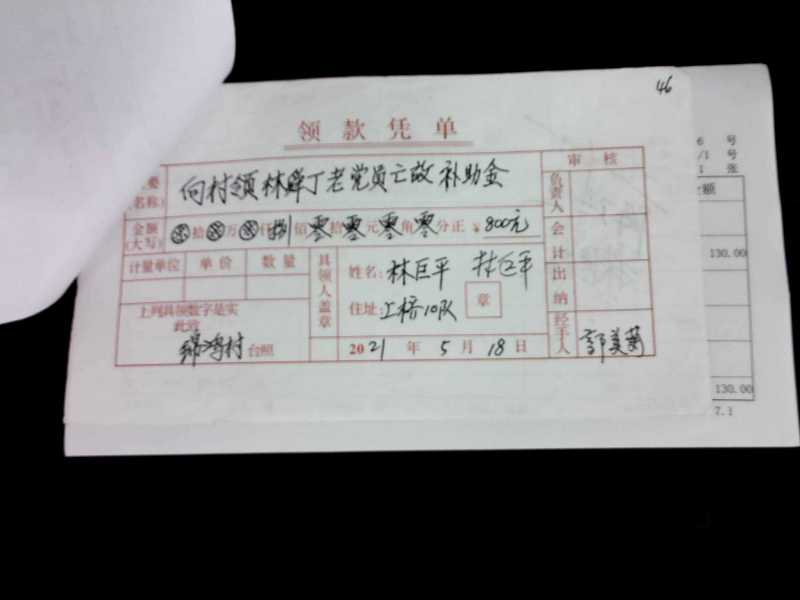 46
领款凭单
要 向村领林 丁老党员亡故补助金
(名称)
审核
负责人
金额(大写) 拾 万 仟捌佰零拾零元零角零分正 ¥800元
会计
计量单位 单价 数量
具领人盖章
姓名:林巨平 林巨平
出纳
住址:上桥10队 章
上列具领数字是实
此致
村台照
2021年5月18日
经手人 郭美
号
/1 号
1 张
额
130.00
130.00
7.1